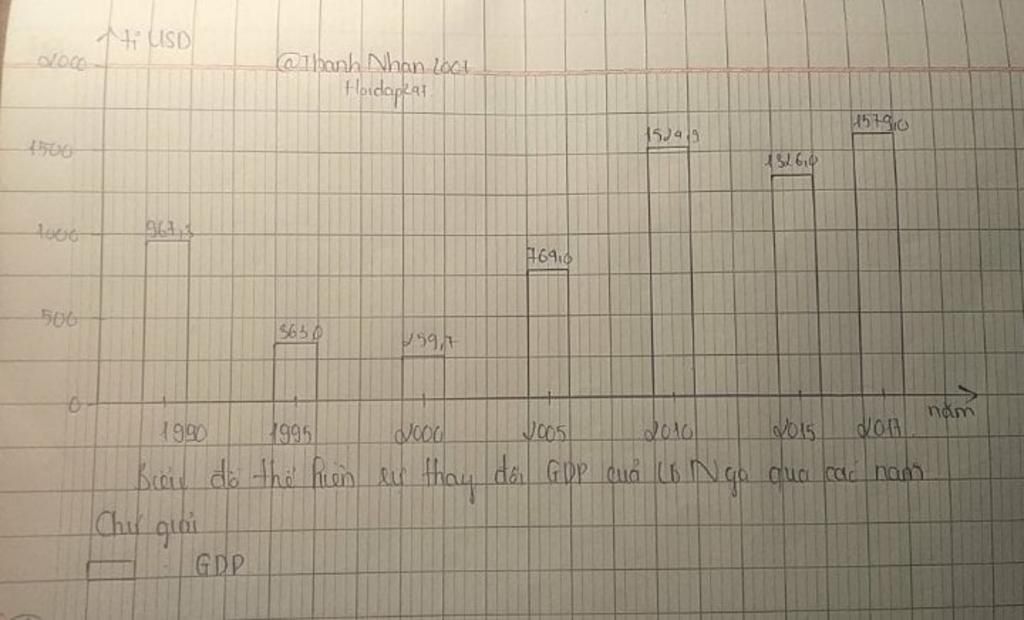 tỉ USD
2000
@Thanh Nhan 2001
Hoidap247
1500
1000
500
0
967,3
363,0
259,7
769,0
1524,9
1326,0
1579,0
1990 1995 2000 2005 2010 2015 2017 năm
Biểu đồ thể hiện sự thay đổi GDP quả LB Nga qua các năm
Chú giải
GDP